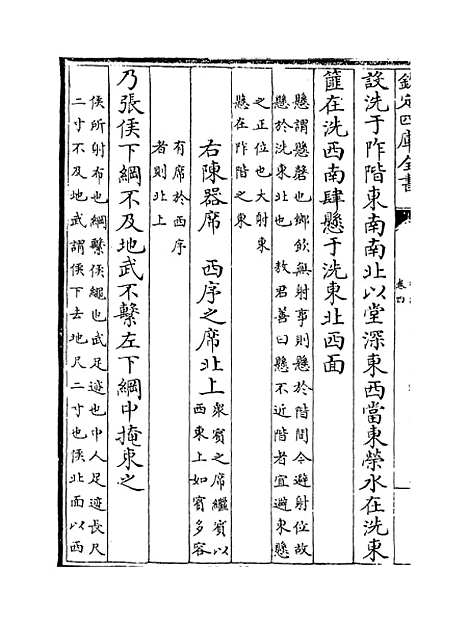 欽定四庫全書
卷四
設洗于阼階東南南北以堂深東西當東榮水在洗東
篚在洗西南肆懸于洗東北西面
懸謂懸磬也鄉飲無射事則懸於階間今避射位故
懸於洗東北也　敖君善曰懸不近階者宜避東懸
之正位也大射東
懸在阼階之東
右陳器席　西序之席北上
衆賓之席繼賓以
西東上如賓多容
有席於西序
者則北上
乃張侯下綱不及地武不繫左下綱中掩束之
侯所射布也綱繫侯繩也武足迹也中人足迹長尺
二寸不及地武謂侯下去地尺二寸也侯北面以西